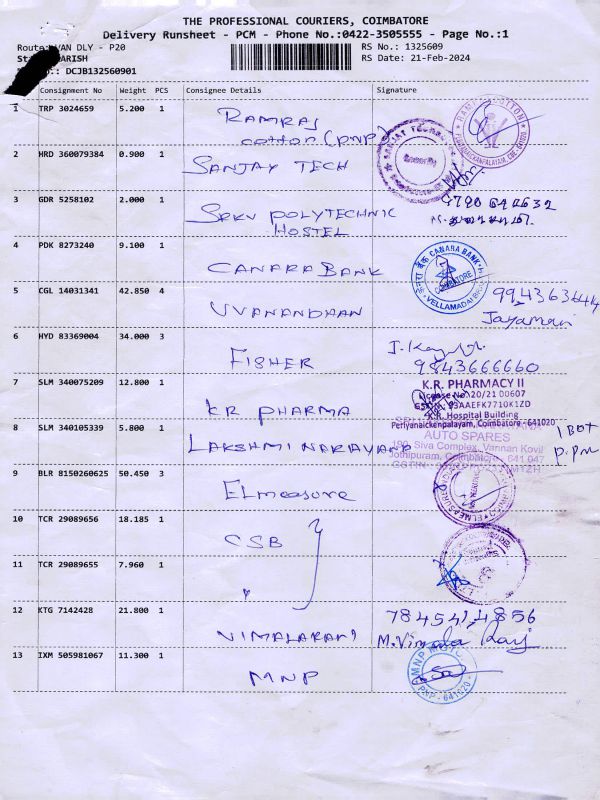 THE PROFESSIONAL COURIERS, COIMBATORE
Delivery Runsheet - PCM - Phone No.:0422-3505555 - Page No.:1
Route: VAN DLY - P20
RS No.: 1325609
ARISH
RS Date: 21-Feb-2024
.: DCJB132560901
Consignment No Weight PCS Consignee Details Signature
1 TRP 3024659 5.200 1 RAMRAJ
cotton (PNP)
2 HRD 360079384 0.900 1 SANJAY TECH
3 GDR 5258102 2.000 1 SRKV POLYTECHNIC
HOSTEL
4 PDK 8273240 9.100 1 CANARA BANK
CANARA BANK
COIMBATORE
VELLAMADAI
5 CGL 14031341 42.850 4 VVANANDHAN
Jayamani
6 HYD 83369004 34.000 3 FISHER
9843666660
7 SLM 340075209 12.800 1 KR PHARMA
K.R. PHARMACY II
License No:20/21 00607
K.R. Hospital Building
Periyanaickenpalayam, Coimbatore - 641020
8 SLM 340105339 5.800 1 LAKSHMI NARAYANA
AUTO SPARES
Siva Complex, Vannan Kovil
Jothipuram, Coimbatore - 641 047
1 BOX
9 BLR 8150260625 50.450 3 ELmeasure
10 TCR 29089656 18.185 1 CSB }
11 TCR 29089655 7.960 1 "
12 KTG 7142428 21.800 1 VIMALARANI
M.Vimala Ranj
13 IXM 505981067 11.300 1 MNP
MNP
PNP - 641020